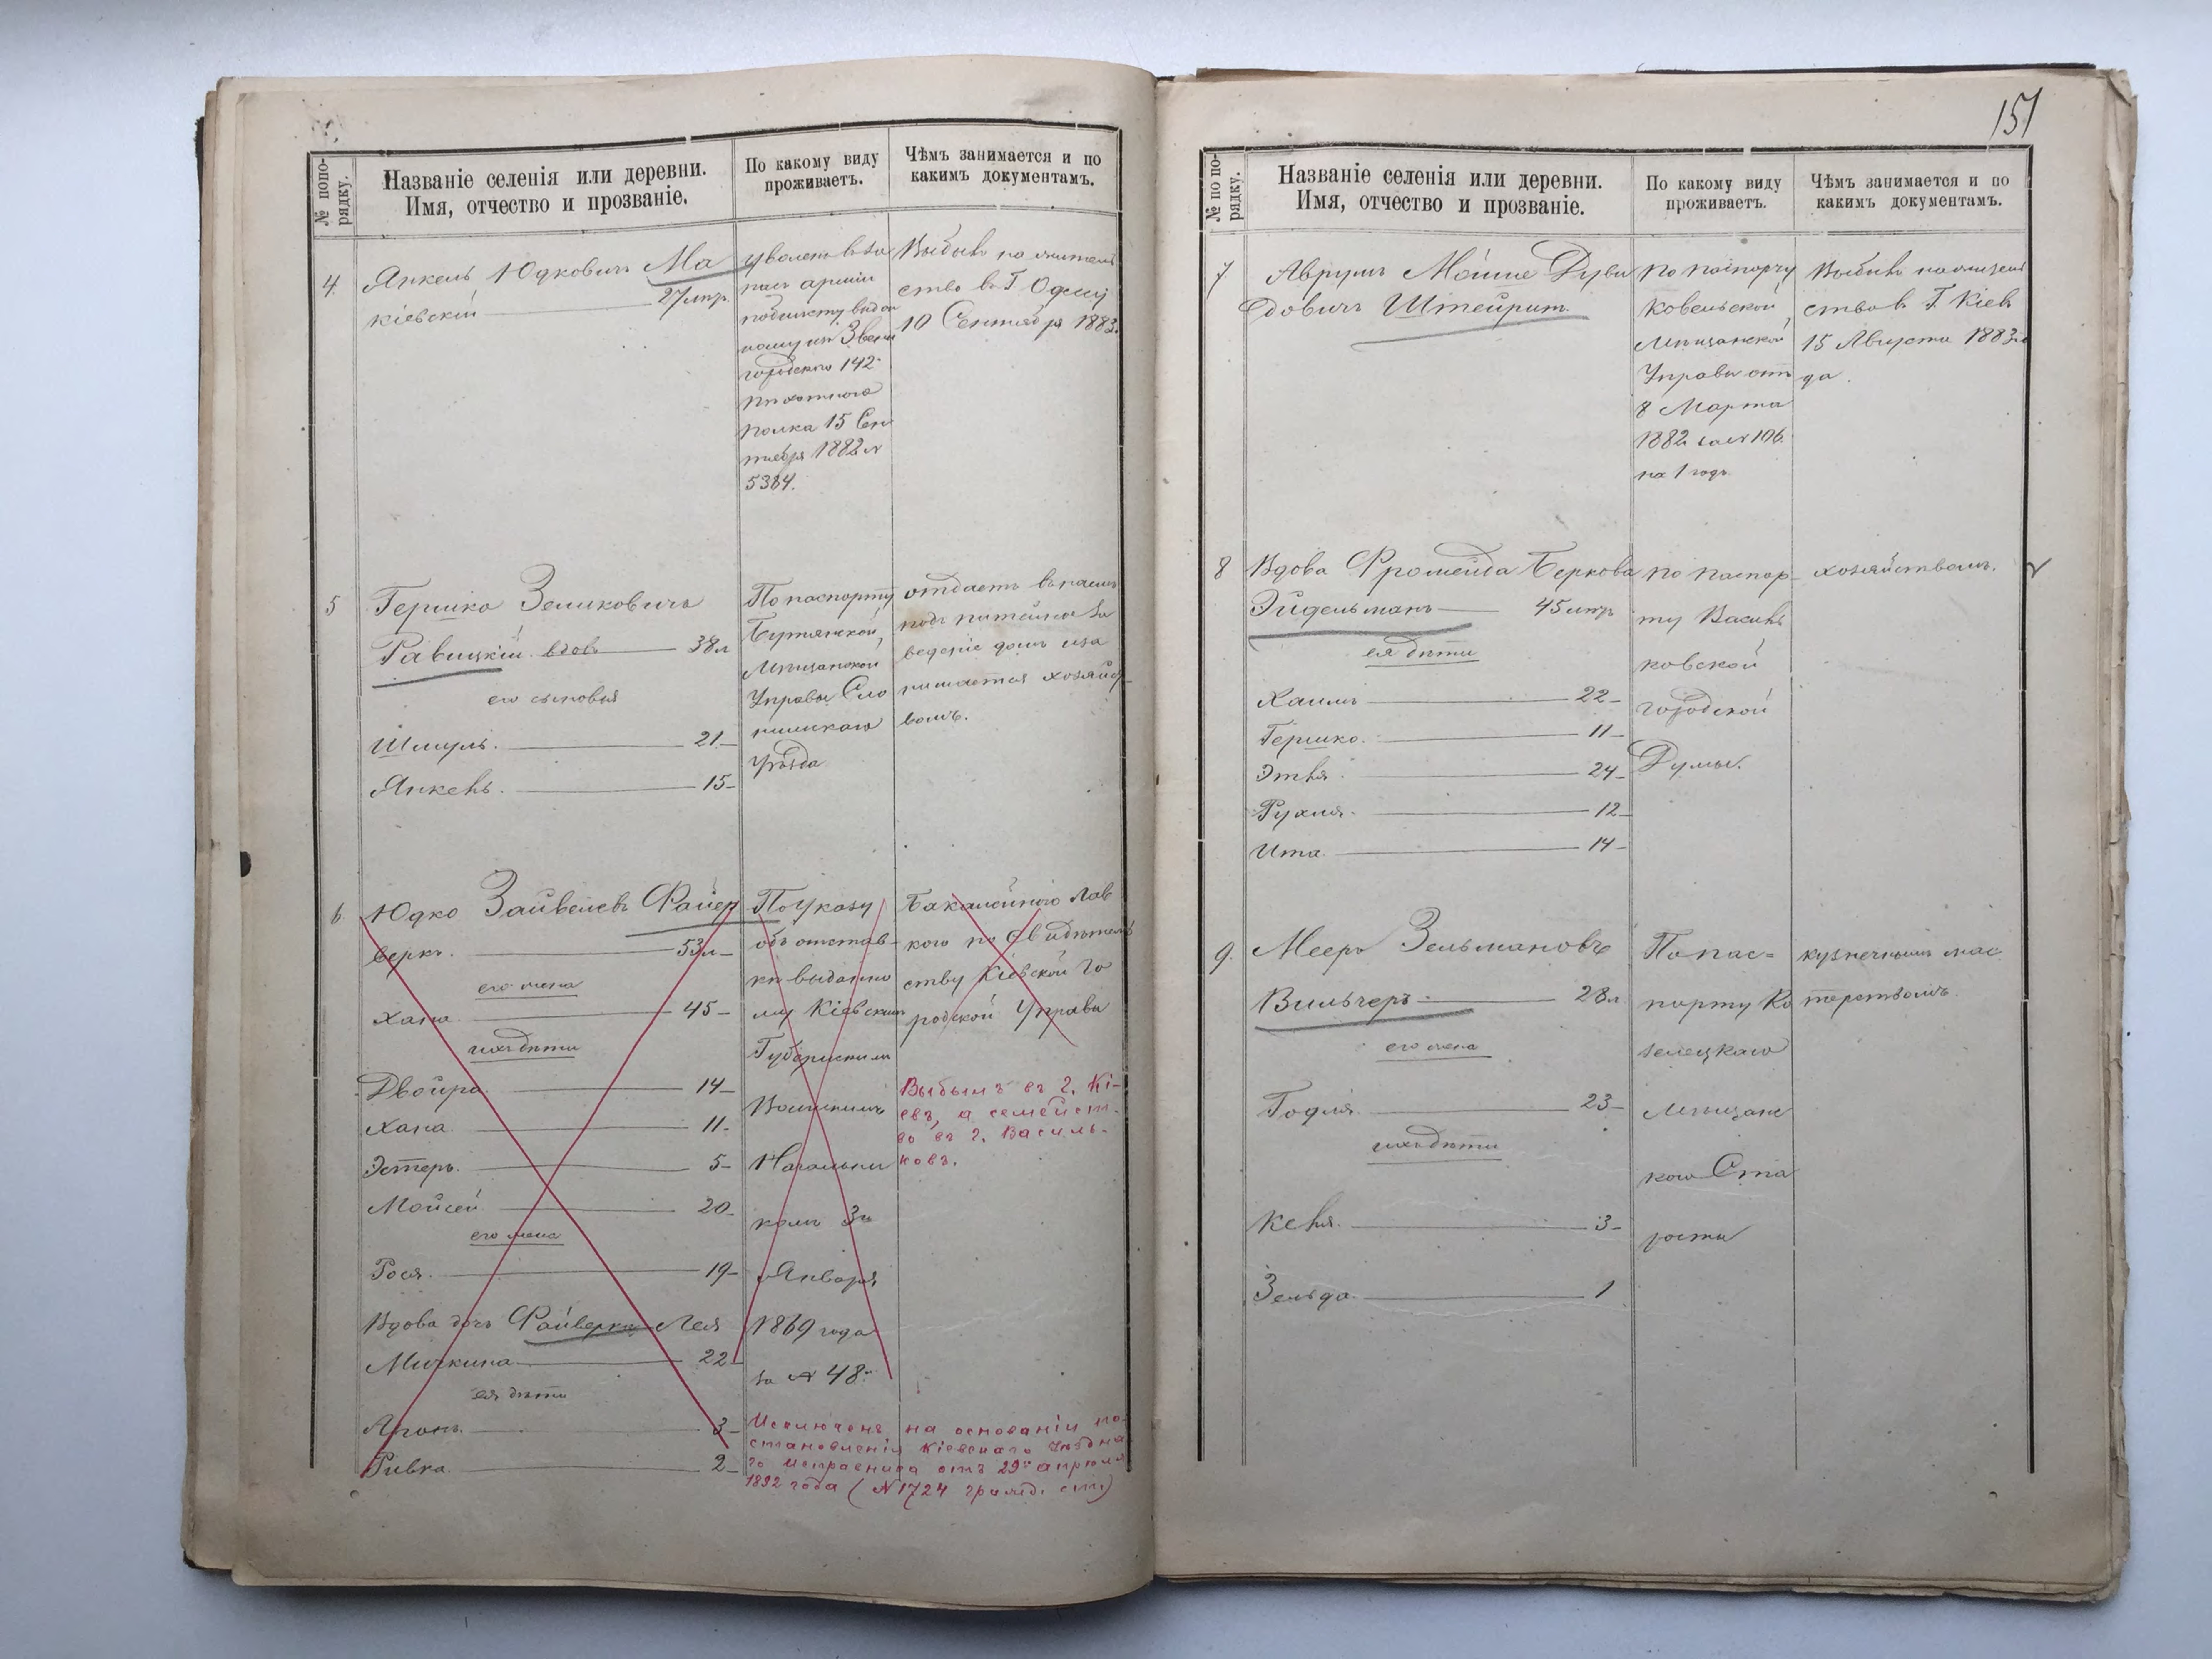 № попо-
рядку.
Названіе селенія или деревни.
Имя, отчество и прозваніе.
По какому виду
проживаетъ.
Чѣмъ занимается и по
какимъ документамъ.
4.
Янкель Юдковичъ Ма
кіевскій 27 лѣтъ
уволенъ въ за
пасъ арміи
по билету выдан
ному изъ Звени
городскаго 142
пѣхотнаго
полка 15 Сен
тября 1882 №
5384.
Выбылъ на житель
ство въ Г. Одессу
10 Сентября 1883.
5
Гершко Зеликовичъ
Равицкій вдов. 38 л
его сыновья
Шмуль. 21
Янкель. 15
По паспорту
Мѣщанской
Управы Сло
нимскаго
уѣзда
отдаетъ въ наемъ
подъ питейное за
веденіе домъ иза
нимается хозяйс
вомъ.
6.
Юдко Зайвелевъ Файер
веркъ. 53 л
его жена
Хана 45
ихъ дѣти
Двойра 14
Хана 11
Эстеръ. 5
Мойсей 20
его жена
Рося. 19
Вдова дочь Файверкъ Лея
Мичкина 22
ея дѣти
Аронъ. 3
Ривка 2
По Указу
объ отстав-
кѣ выданно
му Кіевскимъ
Губернскимъ
Воинскимъ
Начальни
комъ 3го
Января
1869 года
за № 48
Бакалейною лав
кою по свидѣтель
ству Кіевской Го
родской Управы
Выбылъ въ г. Кі-
евъ, а семейст-
во въ г. Василь-
ковъ.
Исключенъ на основаніи по
становленія Кіевскаго Уѣздна
го Исправника отъ 29го апрѣля
1892 года (№ 1724
151
№ по по-
рядку.
Названіе селенія или деревни.
Имя, отчество и прозваніе.
По какому виду
проживаетъ.
Чѣмъ занимается и по
какимъ документамъ.
7.
Аврумъ Мошие Дуви
довичъ Штейритъ
По паспорту
Ковельской
Мѣщанской
Управы отъ
8 Марта
1882 за № 106
на 1 годъ
Выбылъ на жител
ство въ Г. Кіев
15 Августа 1883 го
да.
8
Вдова Фромейда Беркова
Эйдельманъ 45 лѣтъ
ея дѣти
Хаимъ 22
Гершко. 11
Этля. 24
Рухля. 12
Ита. 14
По паспор
ту Василь
ковской
городской
Думы.
хозяйствомъ.
9.
Мееръ Зельмановъ
Вильчеръ 28 л.
его жена
Годля. 23
ихъ дѣти
Кейля. 3
Зельда 1
По пас=
порту Ко
зелецкаго
мѣщанс
каго Ста
росты
кузнечнымъ мас
терствомъ.